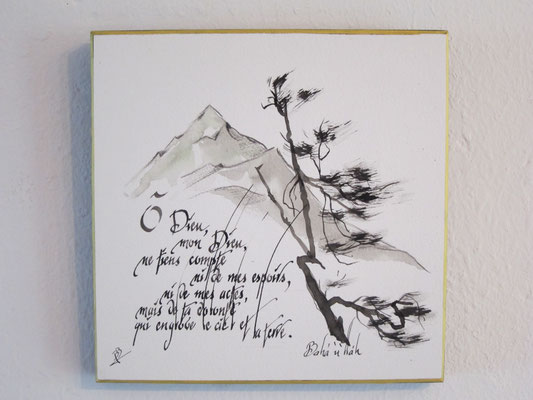 Ô Dieu,
mon Dieu,
ne tiens compte
ni de mes espoirs,
ni de mes actes,
mais de ta volonté
qui englobe le ciel et la terre.
Bahá'u'lláh